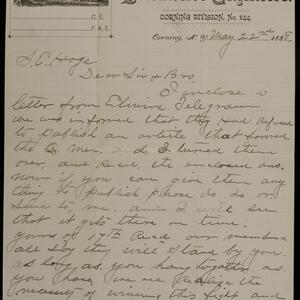 C.E.
F.A.E.
CORNING DIVISION, No. 244.
Corning, N.Y. May 22nd 1888
S. E. Hoge
Dear Sir & Bro
I enclose a
letter from Elmira Telegram
we was informed that they had refused
to publish an article that favored
the Q. Men. and. I turned them
over and Recd. the enclosed ans.
now if you can give them any
thing to publish please do so or
send to me. and I will see
that it gets there on time.
yours of 17th Recd our members
all say they will Stand by you.
as long as. you hang together as.
you have, we all Realize the
necessity of winning this fight and